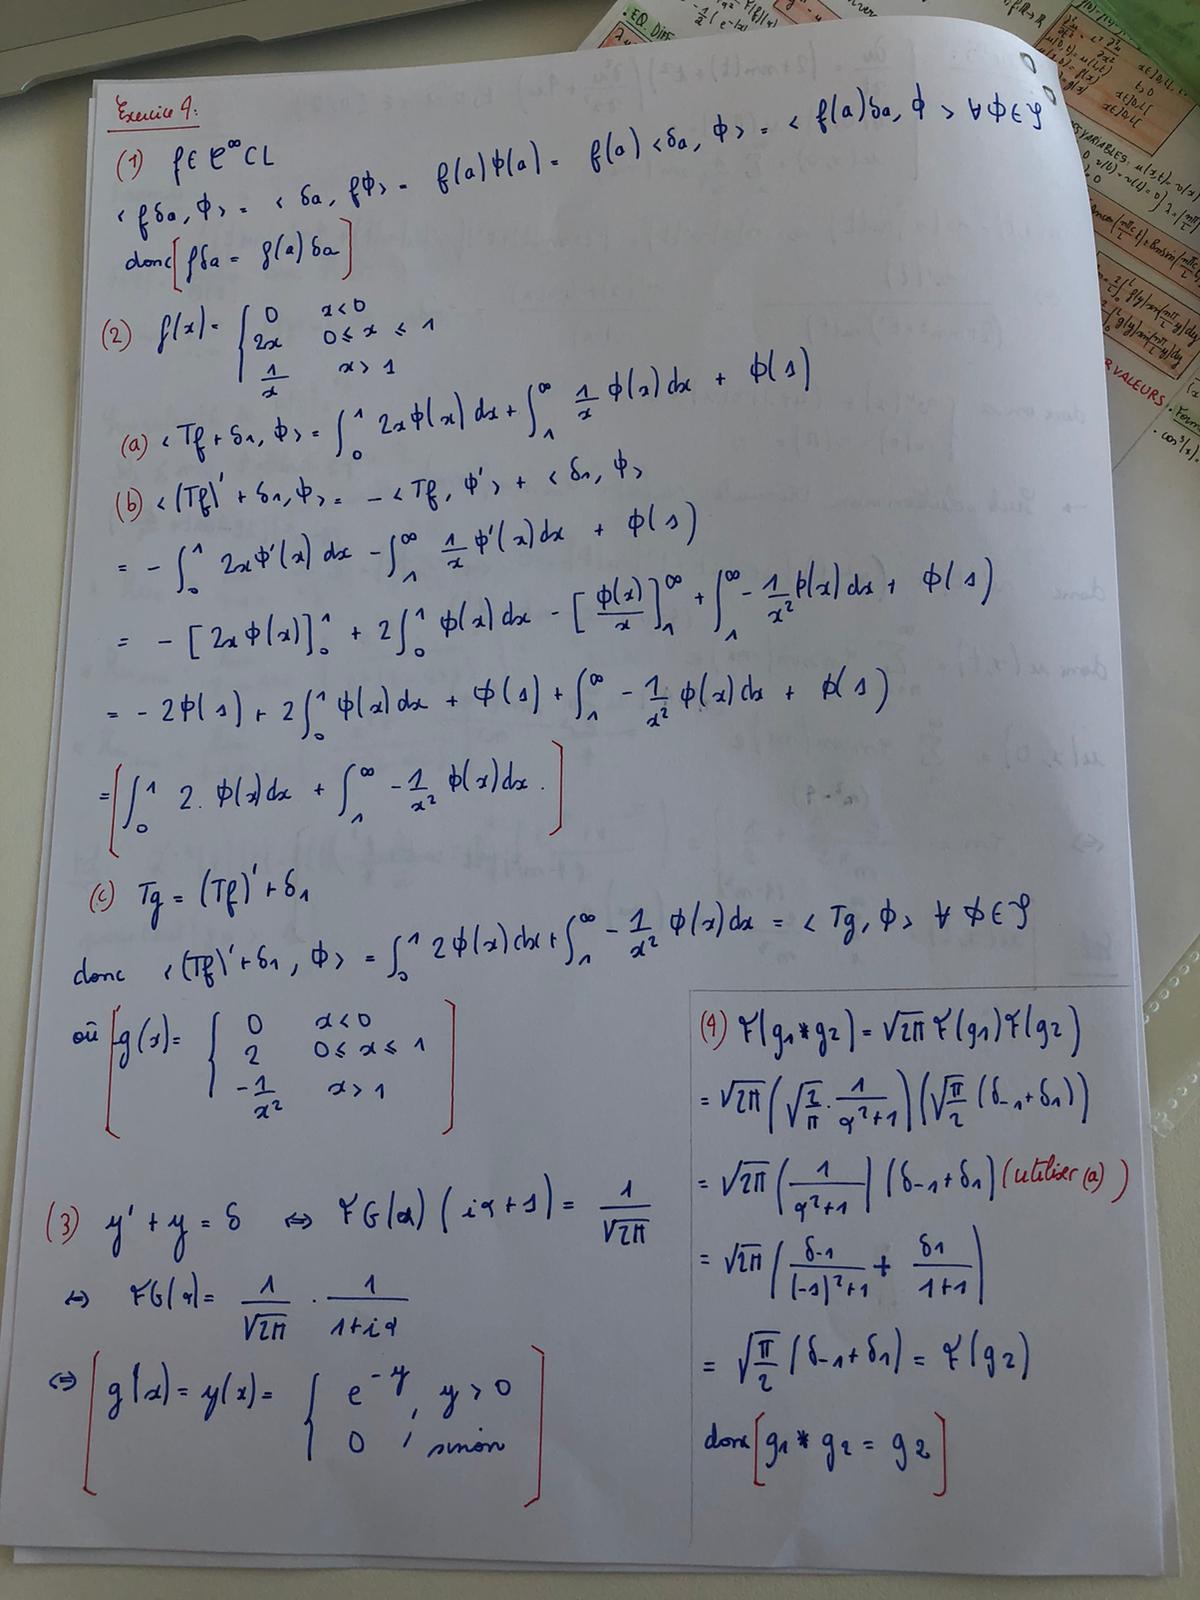 Exercice 4:
(1) f ∈ C^∞ CL
<fδa, ϕ> = <δa, fϕ> = f(a)ϕ(a) = f(a)<δa, ϕ> = <f(a)δa, ϕ> ∀ϕ∈𝒮
donc [fδa = f(a)δa]
(2) f(x) = { 0 x<0
2x 0≤x≤1
1/x x>1
(a) <Tf + δ1, ϕ> = ∫_0^1 2xϕ(x)dx + ∫_1^∞ 1/x ϕ(x)dx + ϕ(1)
(b) <(Tf)' + δ1, ϕ> = - <Tf, ϕ'> + <δ1, ϕ>
= - ∫_0^1 2xϕ'(x)dx - ∫_1^∞ 1/x ϕ'(x)dx + ϕ(1)
= - [2xϕ(x)]_0^1 + 2∫_0^1 ϕ(x)dx - [ϕ(x)/x]_1^∞ + ∫_1^∞ - 1/x² ϕ(x)dx + ϕ(1)
= - 2ϕ(1) + 2∫_0^1 ϕ(x)dx + ϕ(1) + ∫_1^∞ - 1/x² ϕ(x)dx + ϕ(1)
= [∫_0^1 2. ϕ(x)dx + ∫_1^∞ - 1/x² ϕ(x)dx.]
(c) Tg = (Tf)' + δ1
donc <(Tf)' + δ1, ϕ> = ∫_0^1 2ϕ(x)dx + ∫_1^∞ - 1/x² ϕ(x)dx = <Tg, ϕ> ∀ϕ∈𝒮
où [g(x) = { 0 x<0
2 0≤x≤1
-1/x² x>1]
(3) y' + y = δ ⇔ FG(α)(iα+1) = 1/√2π
⇔ FG(α) = 1/√2π · 1/(1+iα)
⇔ [g(x) = y(x) = { e^-y, y>0
0, sinon]
(4) F(g1*g2) = √2π F(g1)F(g2)
= √2π (√2/π · 1/(α²+1)) (√π/2 (δ-1+δ1))
= √2π (1/(α²+1)) (δ-1+δ1) (utiliser (a))
= √2π (δ-1/((-1)²+1) + δ1/(1+1))
= √π/2 (δ-1+δ1) = F(g2)
donc [g1 * g2 = g2]
EQ. DIFF
VARIABLES:
VALEURS
cos³(x)